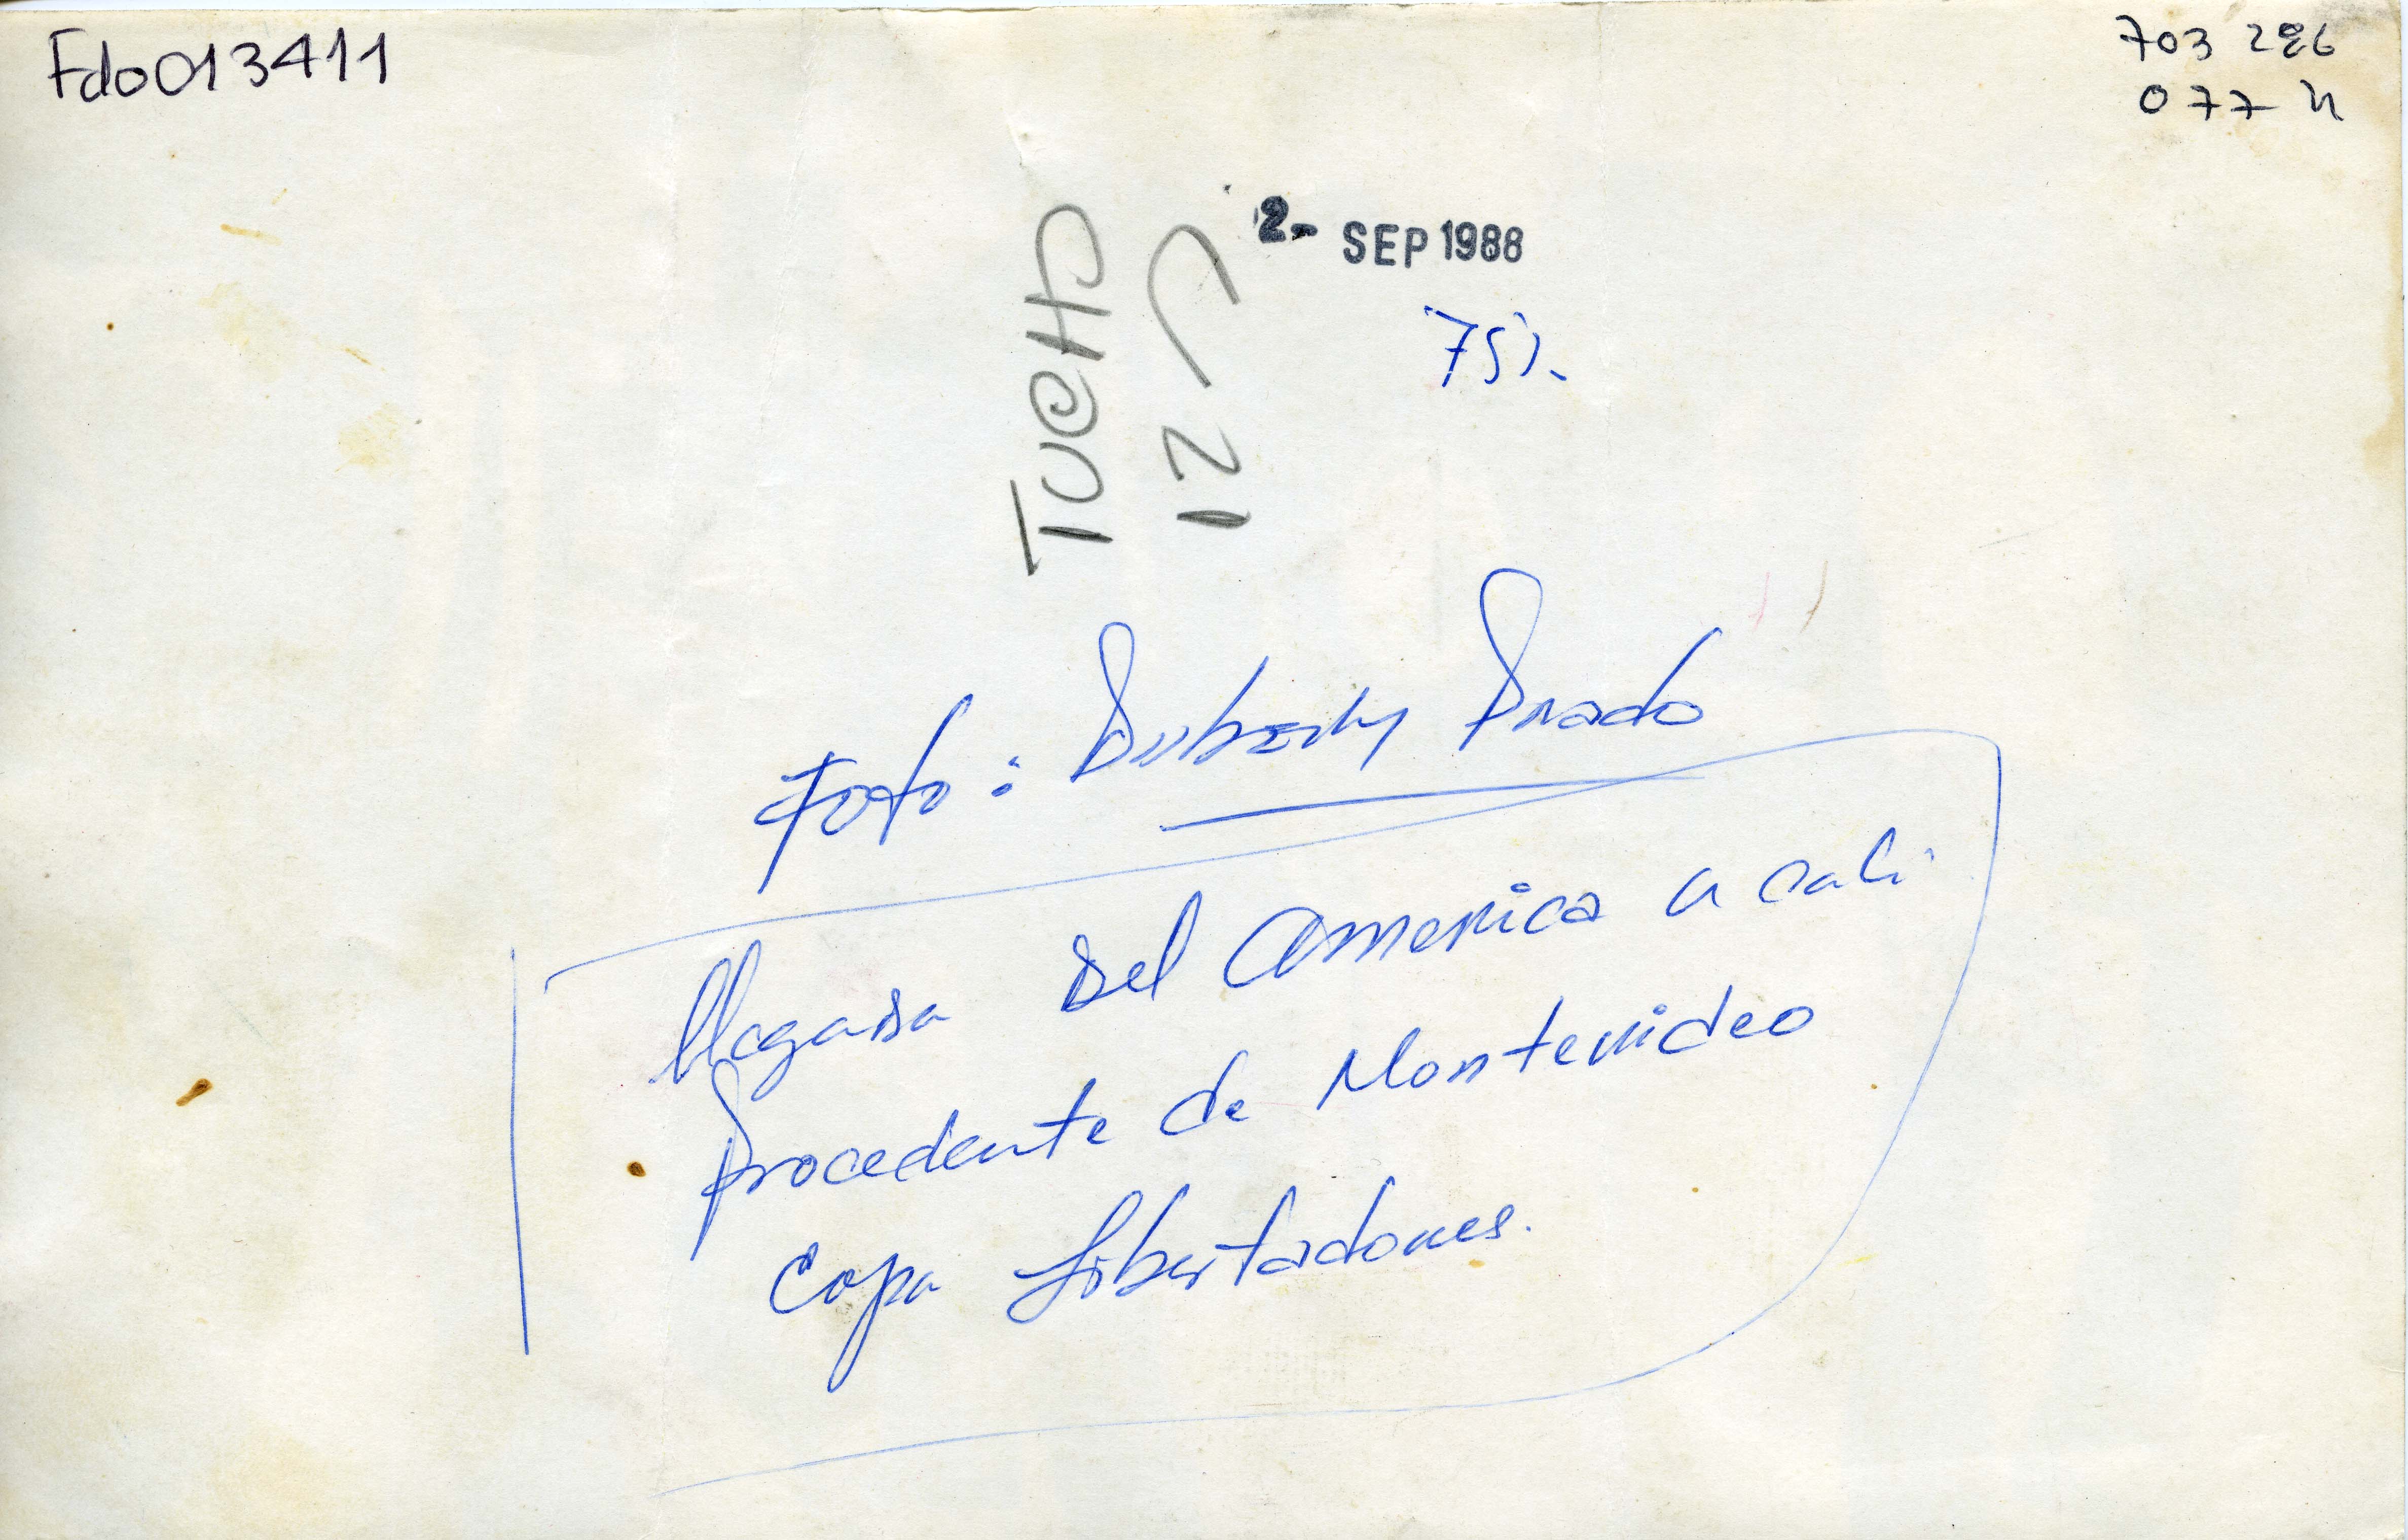 Fdo013411
703 286
077 N
2- SEP 1988
75%
TUCHO
12
Foto: Duberly Prado
llegada del America a cali
Procedente de Montevideo
Copa Libertadores.